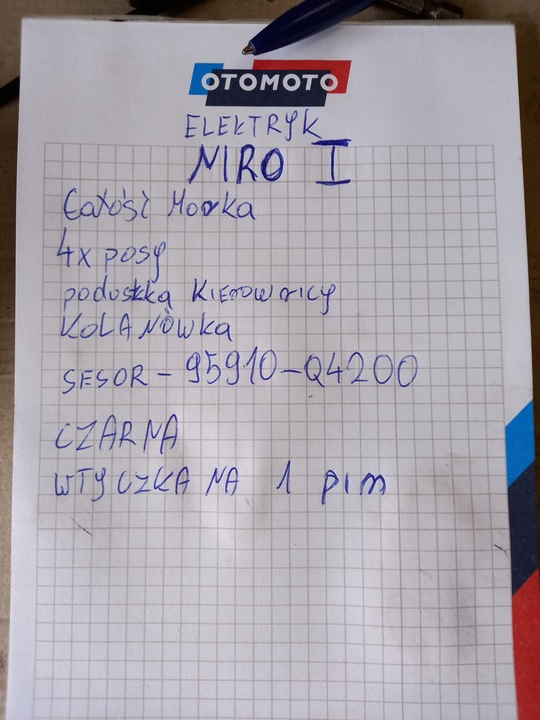 OTOMOTO
ELEKTRYK
NIRO I
Całość Morka
4x posy
poduszka KIEROWNICY
KOLANÓWKA
SESOR - 95910-Q4200
CZARNA
WTYCZKA NA 1 pin